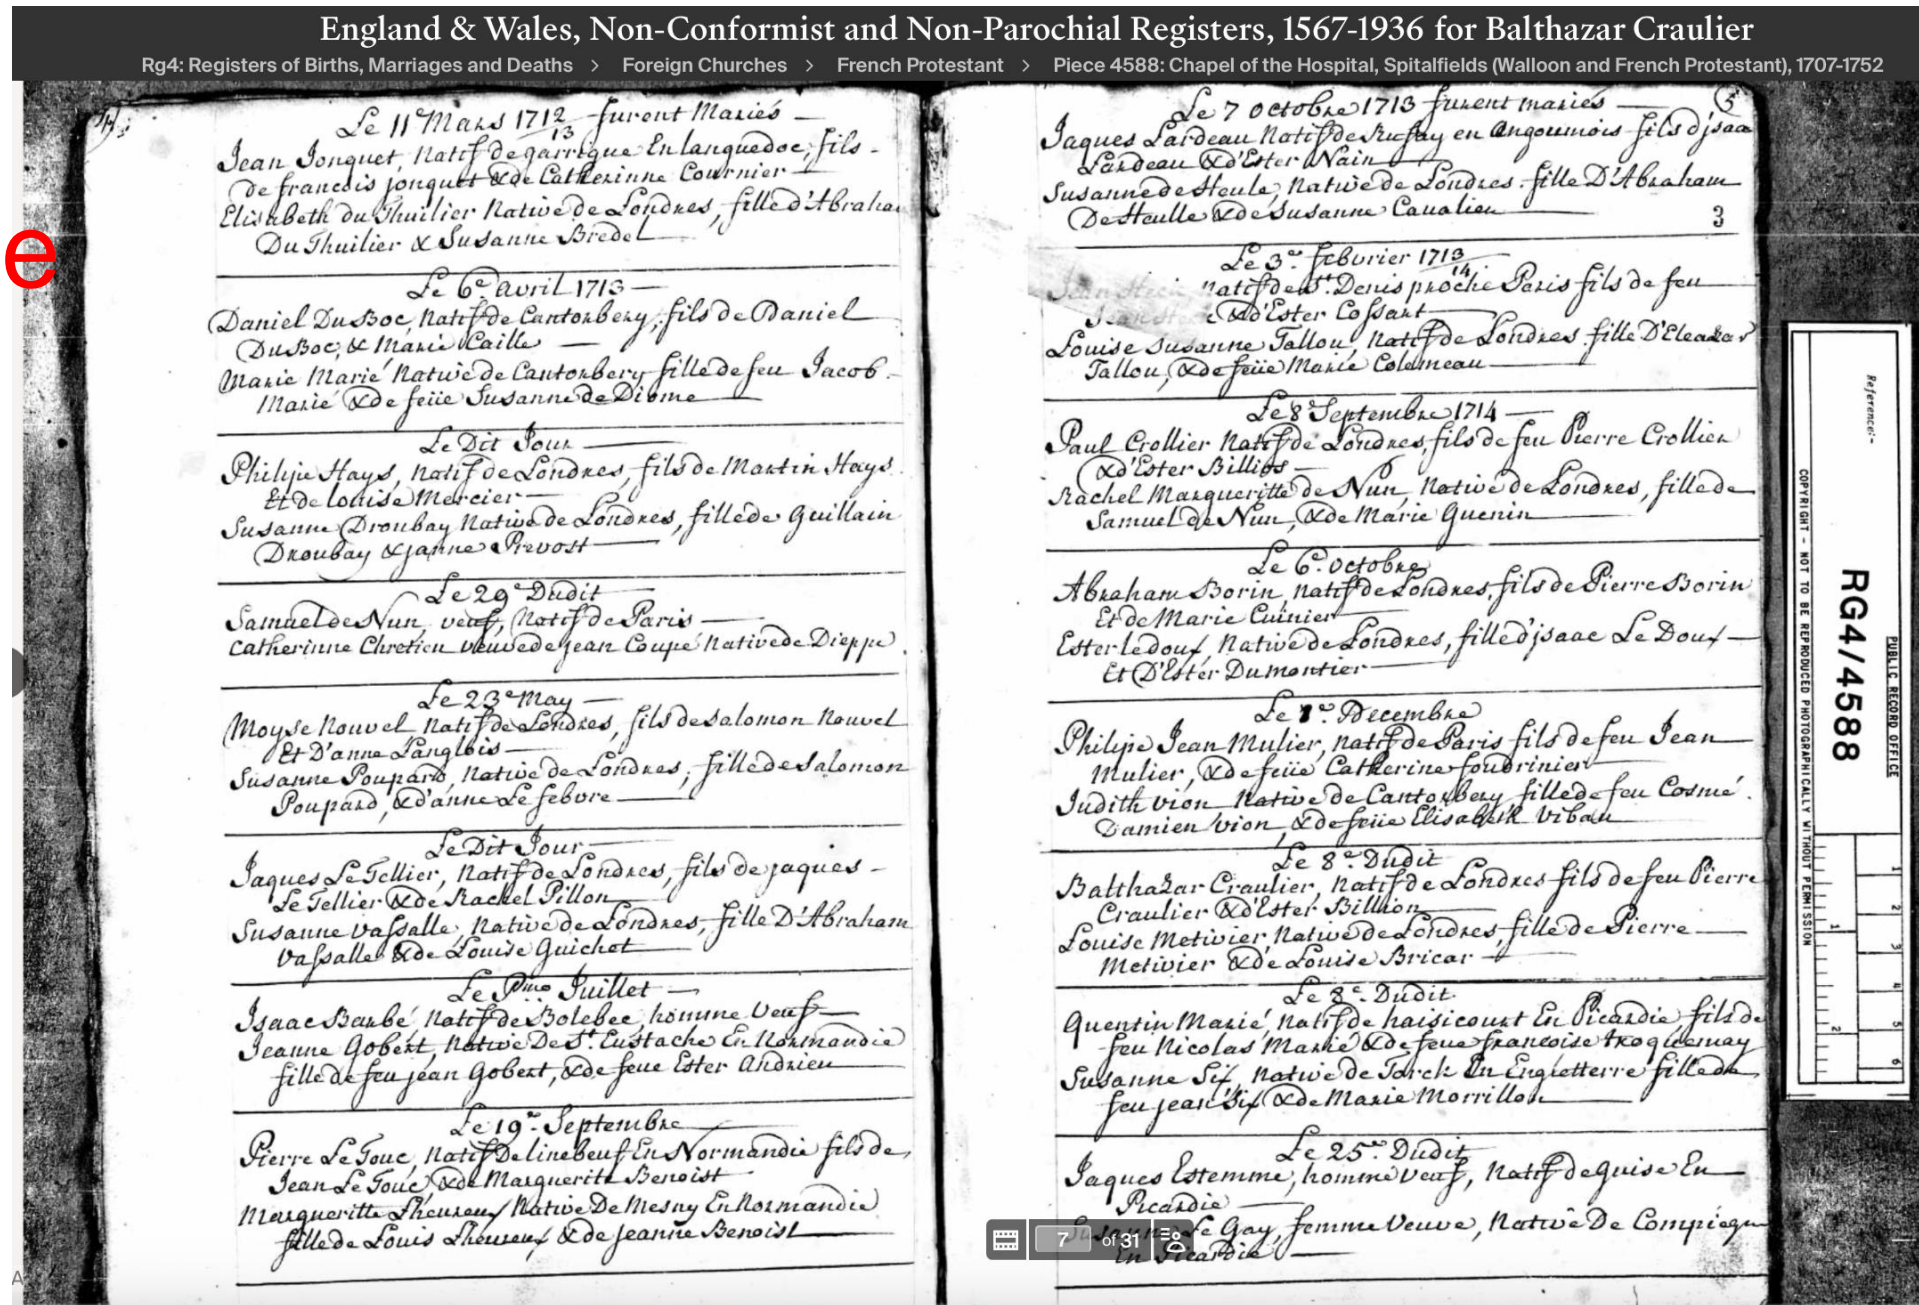 England & Wales, Non-Conformist and Non-Parochial Registers, 1567-1936 for Balthazar Craulier
Rg4: Registers of Births, Marriages and Deaths > Foreign Churches > French Protestant > Piece 4588: Chapel of the Hospital, Spitalfields (Walloon and French Protestant), 1707-1752
e
Le 11e Mars 1712/13 furent Mariés
Jean Jonquet, Natif de garrigue En languedoc, fils
de francois jonquet & de Catherinne Cournier
Elisabeth du Thuilier Native de Londres, fille d'Abraha
Du Thuilier & Susanne Bredel
Le 6e avril 1713
Daniel DuBoc, Natif de Cantorbery, fils de Daniel
DuBoc, & Marie Caille
Marie Marié Native de Cantorbery fille de feu Jacob
Marié & de feüe Susanne de Diome
Le Dit Jour
Philipe Hays, Natif de Londres, fils de Martin Hays
Et de louise Mercier
Susanne Droubay Native de Londres, fille de Guillain
Droubay & janne Prevost
Le 29e Dudit
Samuel de Nun, veuf, Natif de Paris
Catherinne Chretien veuve de jean Coupé Native de Dieppe
Le 23e May
Moyse Nouvel Natif de Londres, fils de salomon Nouvel
Et D'anne Langlois
Susanne Poupard, Native de Londres, fille de salomon
Poupard, & d'anne Le febvre
Le Dit Jour
Jaques Le Tellier, Natif de Londres, fils de jaques
Le Tellier & de Rachel Pillon
Susanne vassalle, Native de Londres, fille D'Abraham
Vassalle & de Louise Guichet
Le Juillet
Isaac Barbé, Natif de Bolebec, homme Veuf
Jeanne Gobert, Native De St. Eustache En Normandie
fille de feu jean Gobert, & de feue Ester Andrieu
Le 19e Septembre
Pierre Le Touc, Natif De linebeuf En Normandie fils de
Jean Le Touc, & de Marguerite Benoist
Margueritte Lheureux Native De Mesny En Normandie
fille de Louis Lheureux & de Jeanne Benoist
5
Le 7 octobre 1713 furent mariés
Jaques Lardeau Natif de Rufay en Angoumois fils d'jsaa
Lardeau & d'Ester Nain
Susanne de Heule, Native de Londres fille D'Abraham
De Heulle & de Susanne Caualier
3
Le 3e febvrier 1713/14
Jean natif de St. Denis proche Paris fils de feu
& d'Ester Cossart
Louise Susanne Tallou, Natif de Londres fille D'Eleazar
Tallou, & de feüe Marie Colemeau
Le 8e Septembre 1714
Paul Crollier Natif de Londres, fils de feu Pierre Crollier
& d'Ester Billios
Rachel Margueritte de Nun, Native de Londres, fille de
Samuel de Nun, & de Marie Guenin
Le 6e octobre
Abraham Borin, natif de Londres, fils de Pierre Borin
Et de Marie Cuinier
Ester ledoux, Native de Londres, fille d'jsaac Le Doux
Et D'Ester Dumontier
Le 1er Decembre
Philipe Jean Mulier, natif de Paris fils de feu Jean
Mulier, & de feüe Catherine foudrinier
Judith vion Native de Cantorbery fille de feu Cosmé
Damien vion, & de feüe Elisabeth Vibau
Le 8e Dudit
Balthazar Craulier, Natif de Londres fils de feu Pierre
Craulier & d'Ester Billion
Louise Metivier, Native de Londres, fille de Pierre
Metivier & de Louise Bricar
Le 8e Dudit
Quentin Marié, natif de haisicourt En Picardie, fils de
feu Nicolas Marié & de feue francoise troqueemay
Susanne Six, native de Torck En Engletterre fille de
feu jean Six & de Marie Morrillon
Le 25e Dudit
Jaques Estemme, homme veuf, Natif de Guise En
Picardie
Susanne Le Gay, femme Veuve, Native De Compiegn
En Picardie
7 of 31
Reference:-
RG4/4588
PUBLIC RECORD OFFICE
COPYRIGHT - NOT TO BE REPRODUCED PHOTOGRAPHICALLY WITHOUT PERMISSION
1
2
1
2
3
4
5
6
A